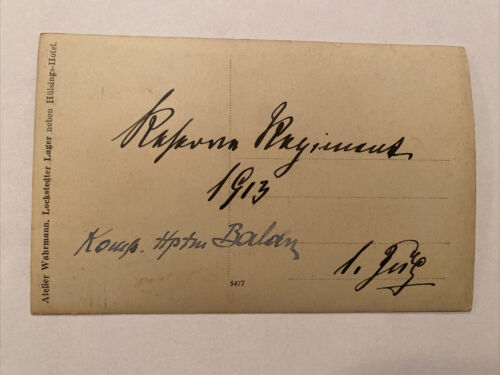 Atelier Wahrmann, Lockstedter Lager neben Hüsings-Hotel.
Reserve Regiment
1913
Komp. Hptm Balan
1. Zug
5477